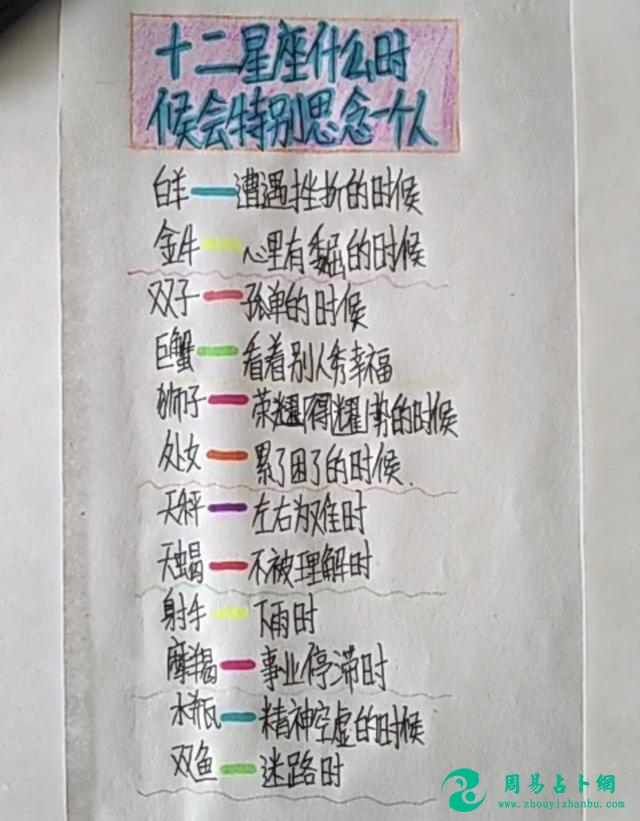 十二星座什么时
候会特别思念一个人
白羊 — 遭遇挫折的时候
金牛 — 心里有委屈的时候
双子 — 孤单的时候
巨蟹 — 看着别人秀幸福
狮子 — 荣耀得耀的时候
处女 — 累了困了的时候.
天秤 — 左右为难时
天蝎 — 不被理解时
射牛 — 下雨时
摩羯 — 事业停滞时
水瓶 — 精神空虚的时候
双鱼 — 迷路时
周易占卜網
www.zhouyizhanbu.com